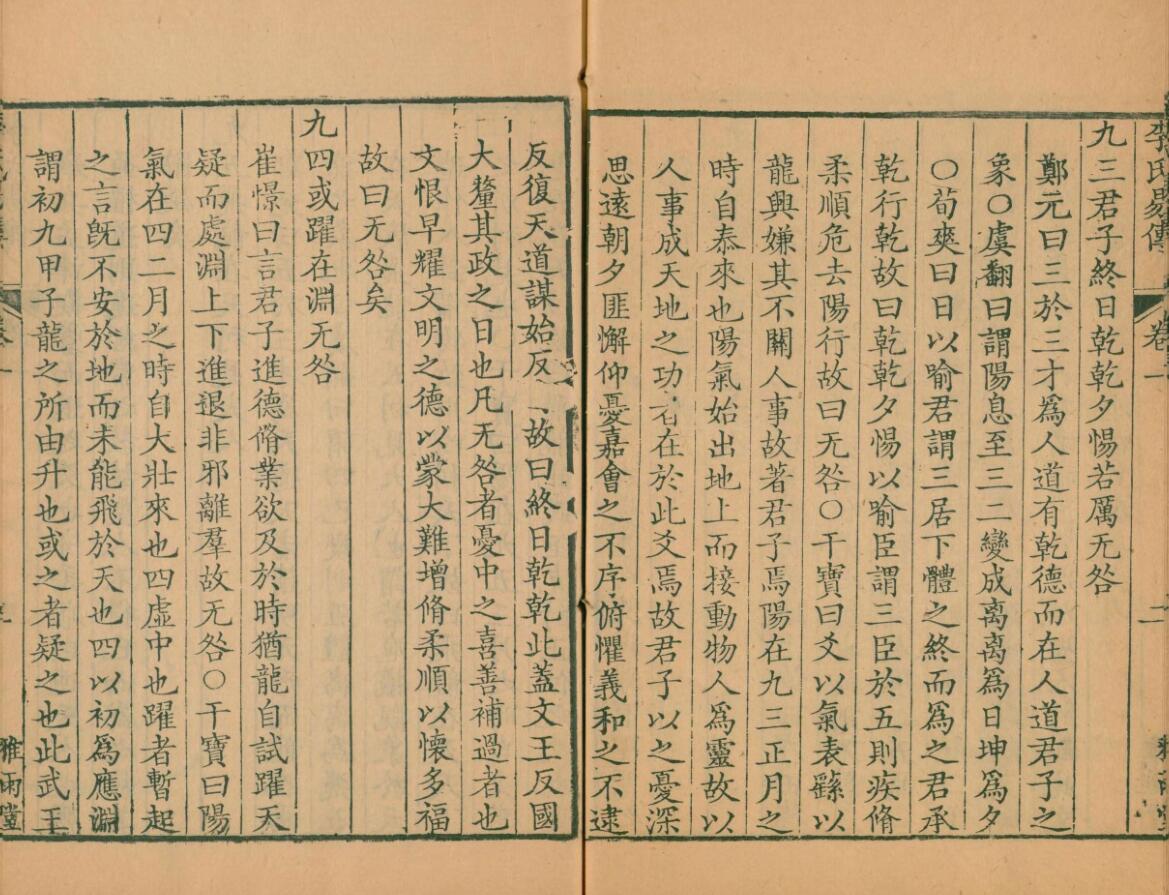 李氏易傳 卷一 二
九三君子終日乾乾夕惕若厲无咎
鄭元曰三於三才爲人道有乾德而在人道君子之
象〇虞翻曰謂陽息至三二變成离离爲日坤爲夕
〇荀爽曰日以喻君謂三居下體之終而爲之君承
乾行乾故曰乾乾夕惕以喻臣謂三臣於五則疾脩
柔順危去陽行故曰无咎〇干寶曰爻以氣表繇以
龍興嫌其不關人事故著君子焉陽在九三正月之
時自泰來也陽氣始出地上而接動物人爲靈故以
人事成天地之功者在於此爻焉故君子以之憂深
思遠朝夕匪懈仰憂嘉會之不序俯懼義和之不逮
反復天道謀始反故曰終日乾乾此蓋文王反國
大釐其政之日也凡无咎者憂中之喜善補過者也
文恨早耀文明之德以蒙大難增脩柔順以懷多福
故曰无咎矣
九四或躍在淵无咎
崔憬曰言君子進德脩業欲及於時猶龍自試躍天
疑而處淵上下進退非邪離羣故无咎〇干寶曰陽
氣在四二月之時自大壯來也四虛中也躍者暫起
之言旣不安於地而未能飛於天也四以初爲應淵
謂初九甲子龍之所由升也或之者疑之也此武王
雅雨堂